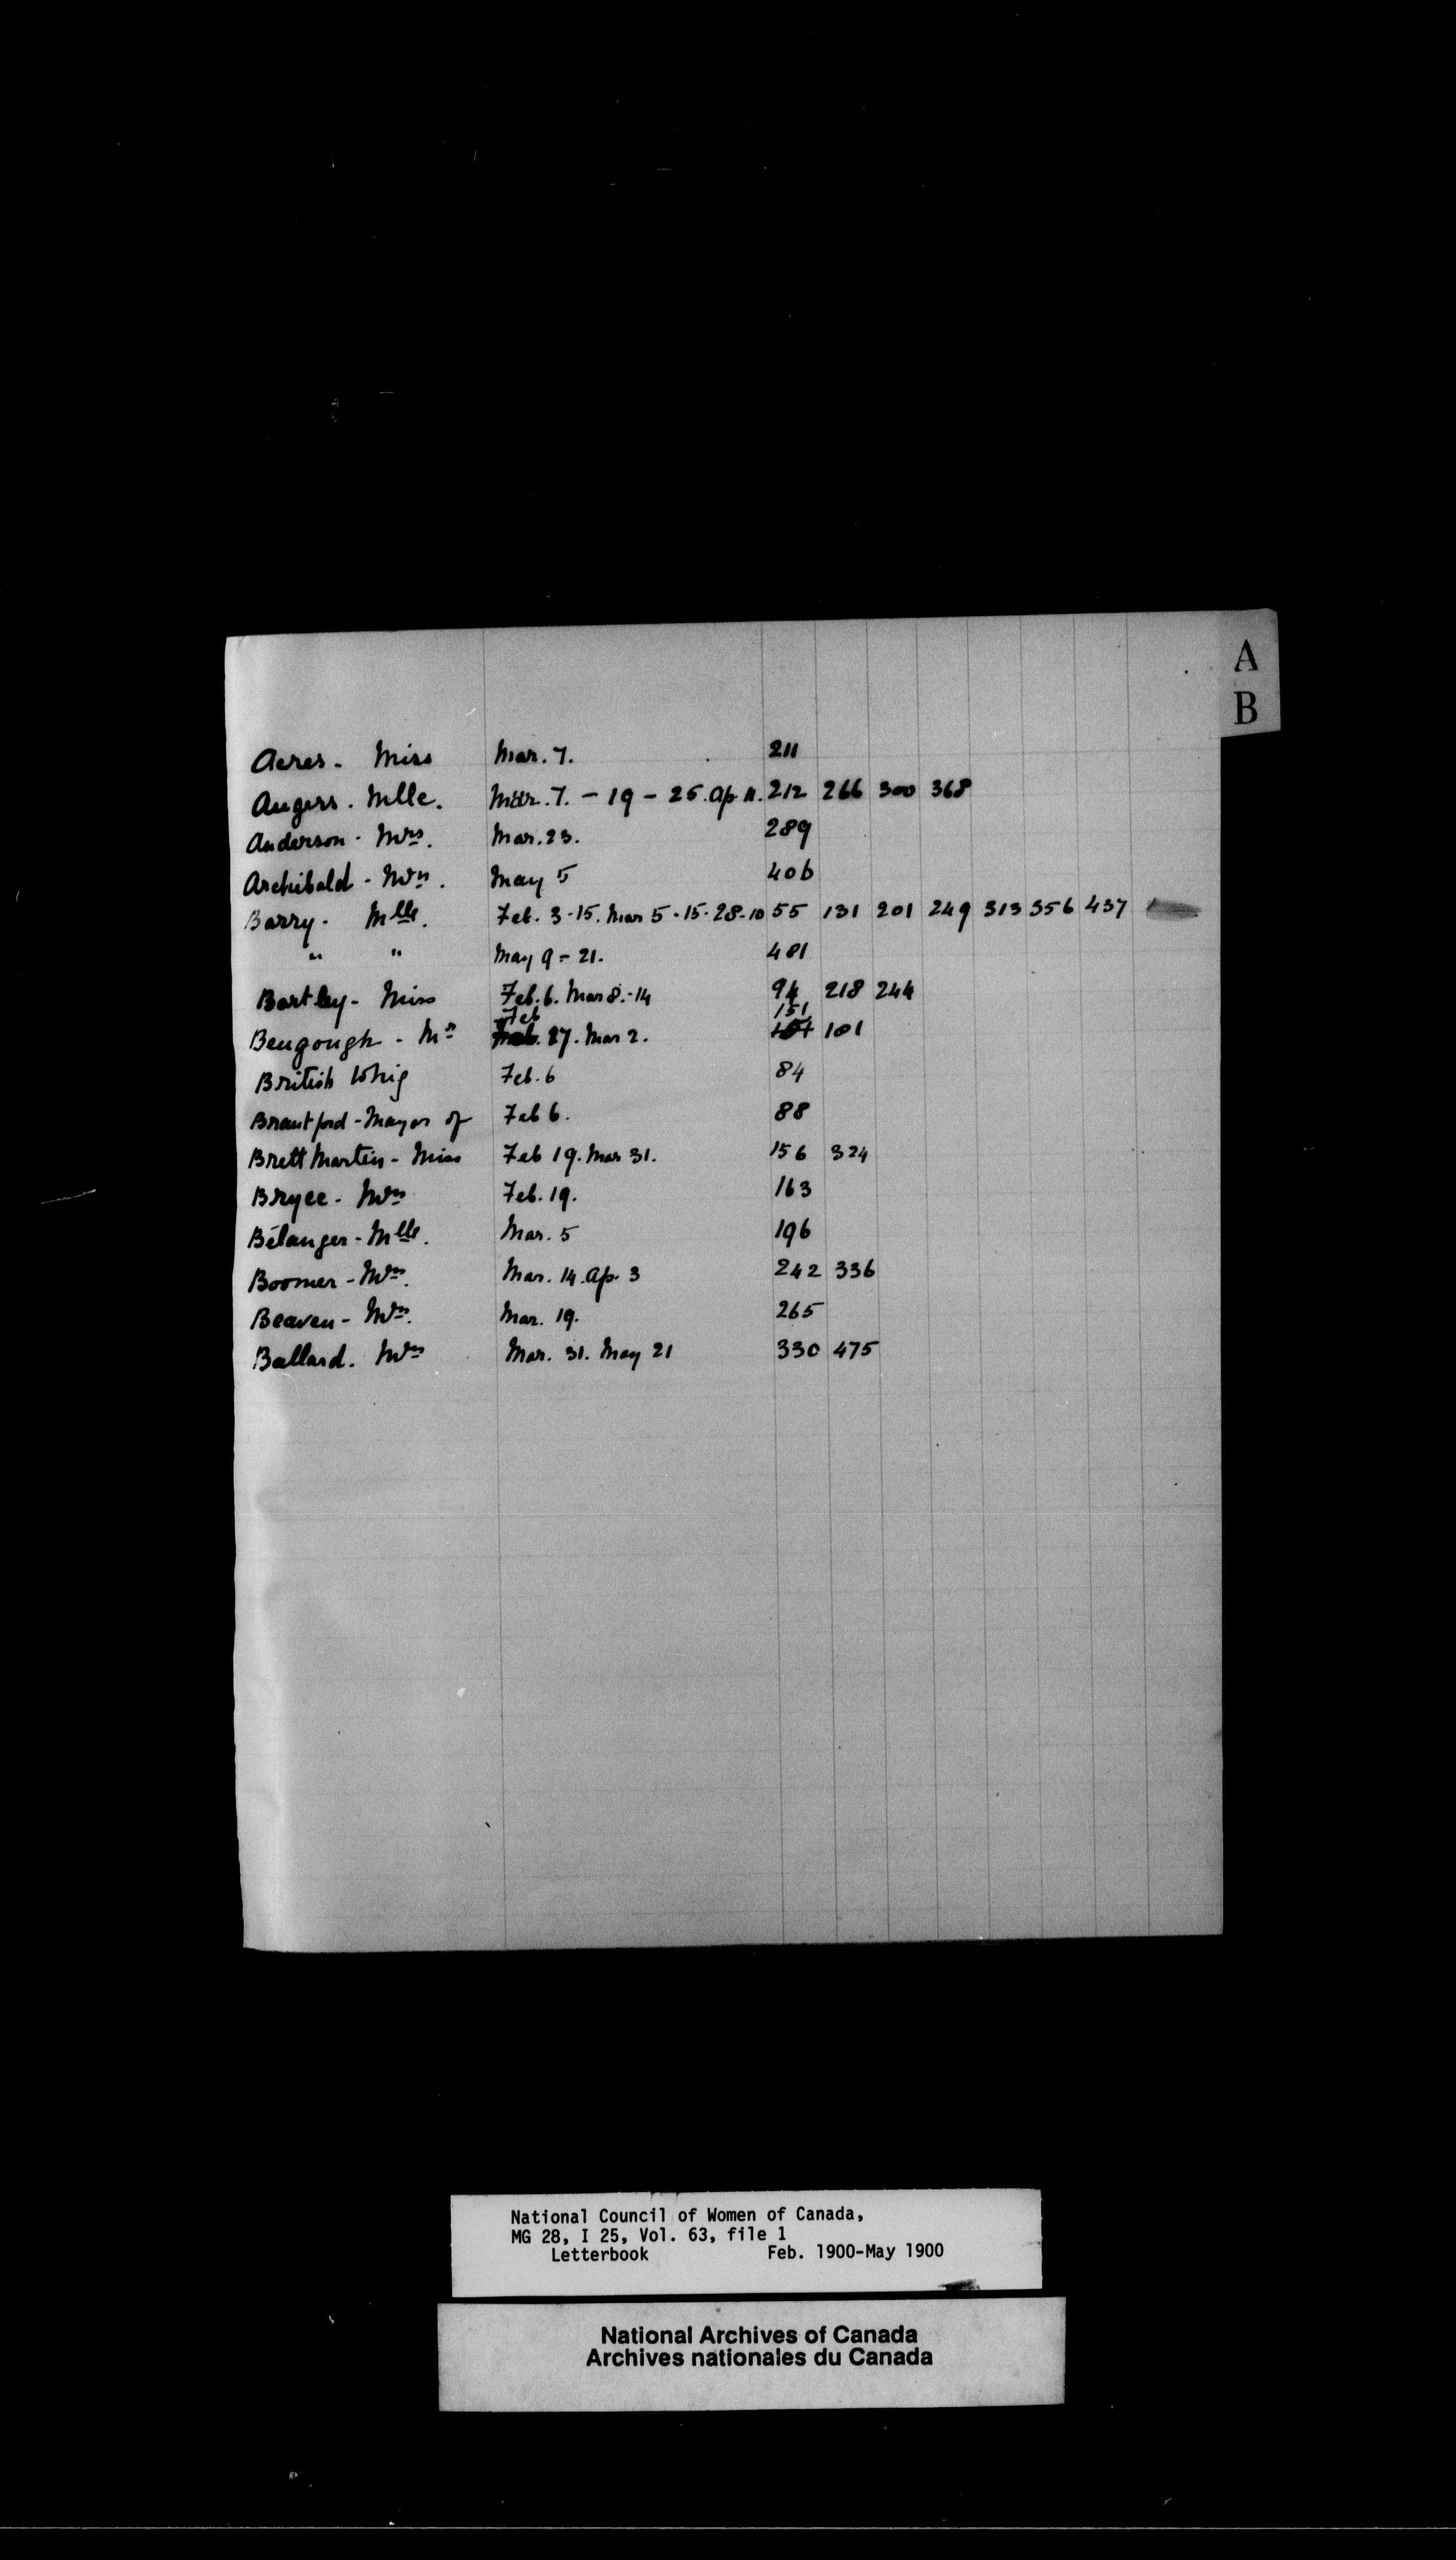 A
B
Acres - Miss Mar. 7. 211
Augers. Mlle. Mar. 7. - 19 - 25. Ap. 11. 212 266 300 368
Anderson - Mrs. Mar. 23. 289
Archibald - Mrs. May 5 406
Barry - Mlle. Feb. 3-15. Mar 5-15-28-10 55 131 201 249 313 356 437
" " May 9 - 21. 481
Bartley - Miss Feb. 6. Mar 8.-14 94 218 244
Feb 151
Bengough - Mr 27. Mar 2. 181
British Whig Feb. 6 84
Brantford - Mayor of Feb 6. 88
Brett Martin - Miss Feb 19. Mar 31. 156 324
Bryce - Mrs Feb. 19. 163
Bélanger - Mlle. Mar. 5 196
Boomer - Mrs. Mar. 14. Ap. 3 242 336
Beaven - Mrs. Mar. 19. 265
Ballard. Mrs Mar. 31. May 21 330 475
National Council of Women of Canada,
MG 28, I 25, Vol. 63, file 1
Letterbook Feb. 1900-May 1900
National Archives of Canada
Archives nationales du Canada